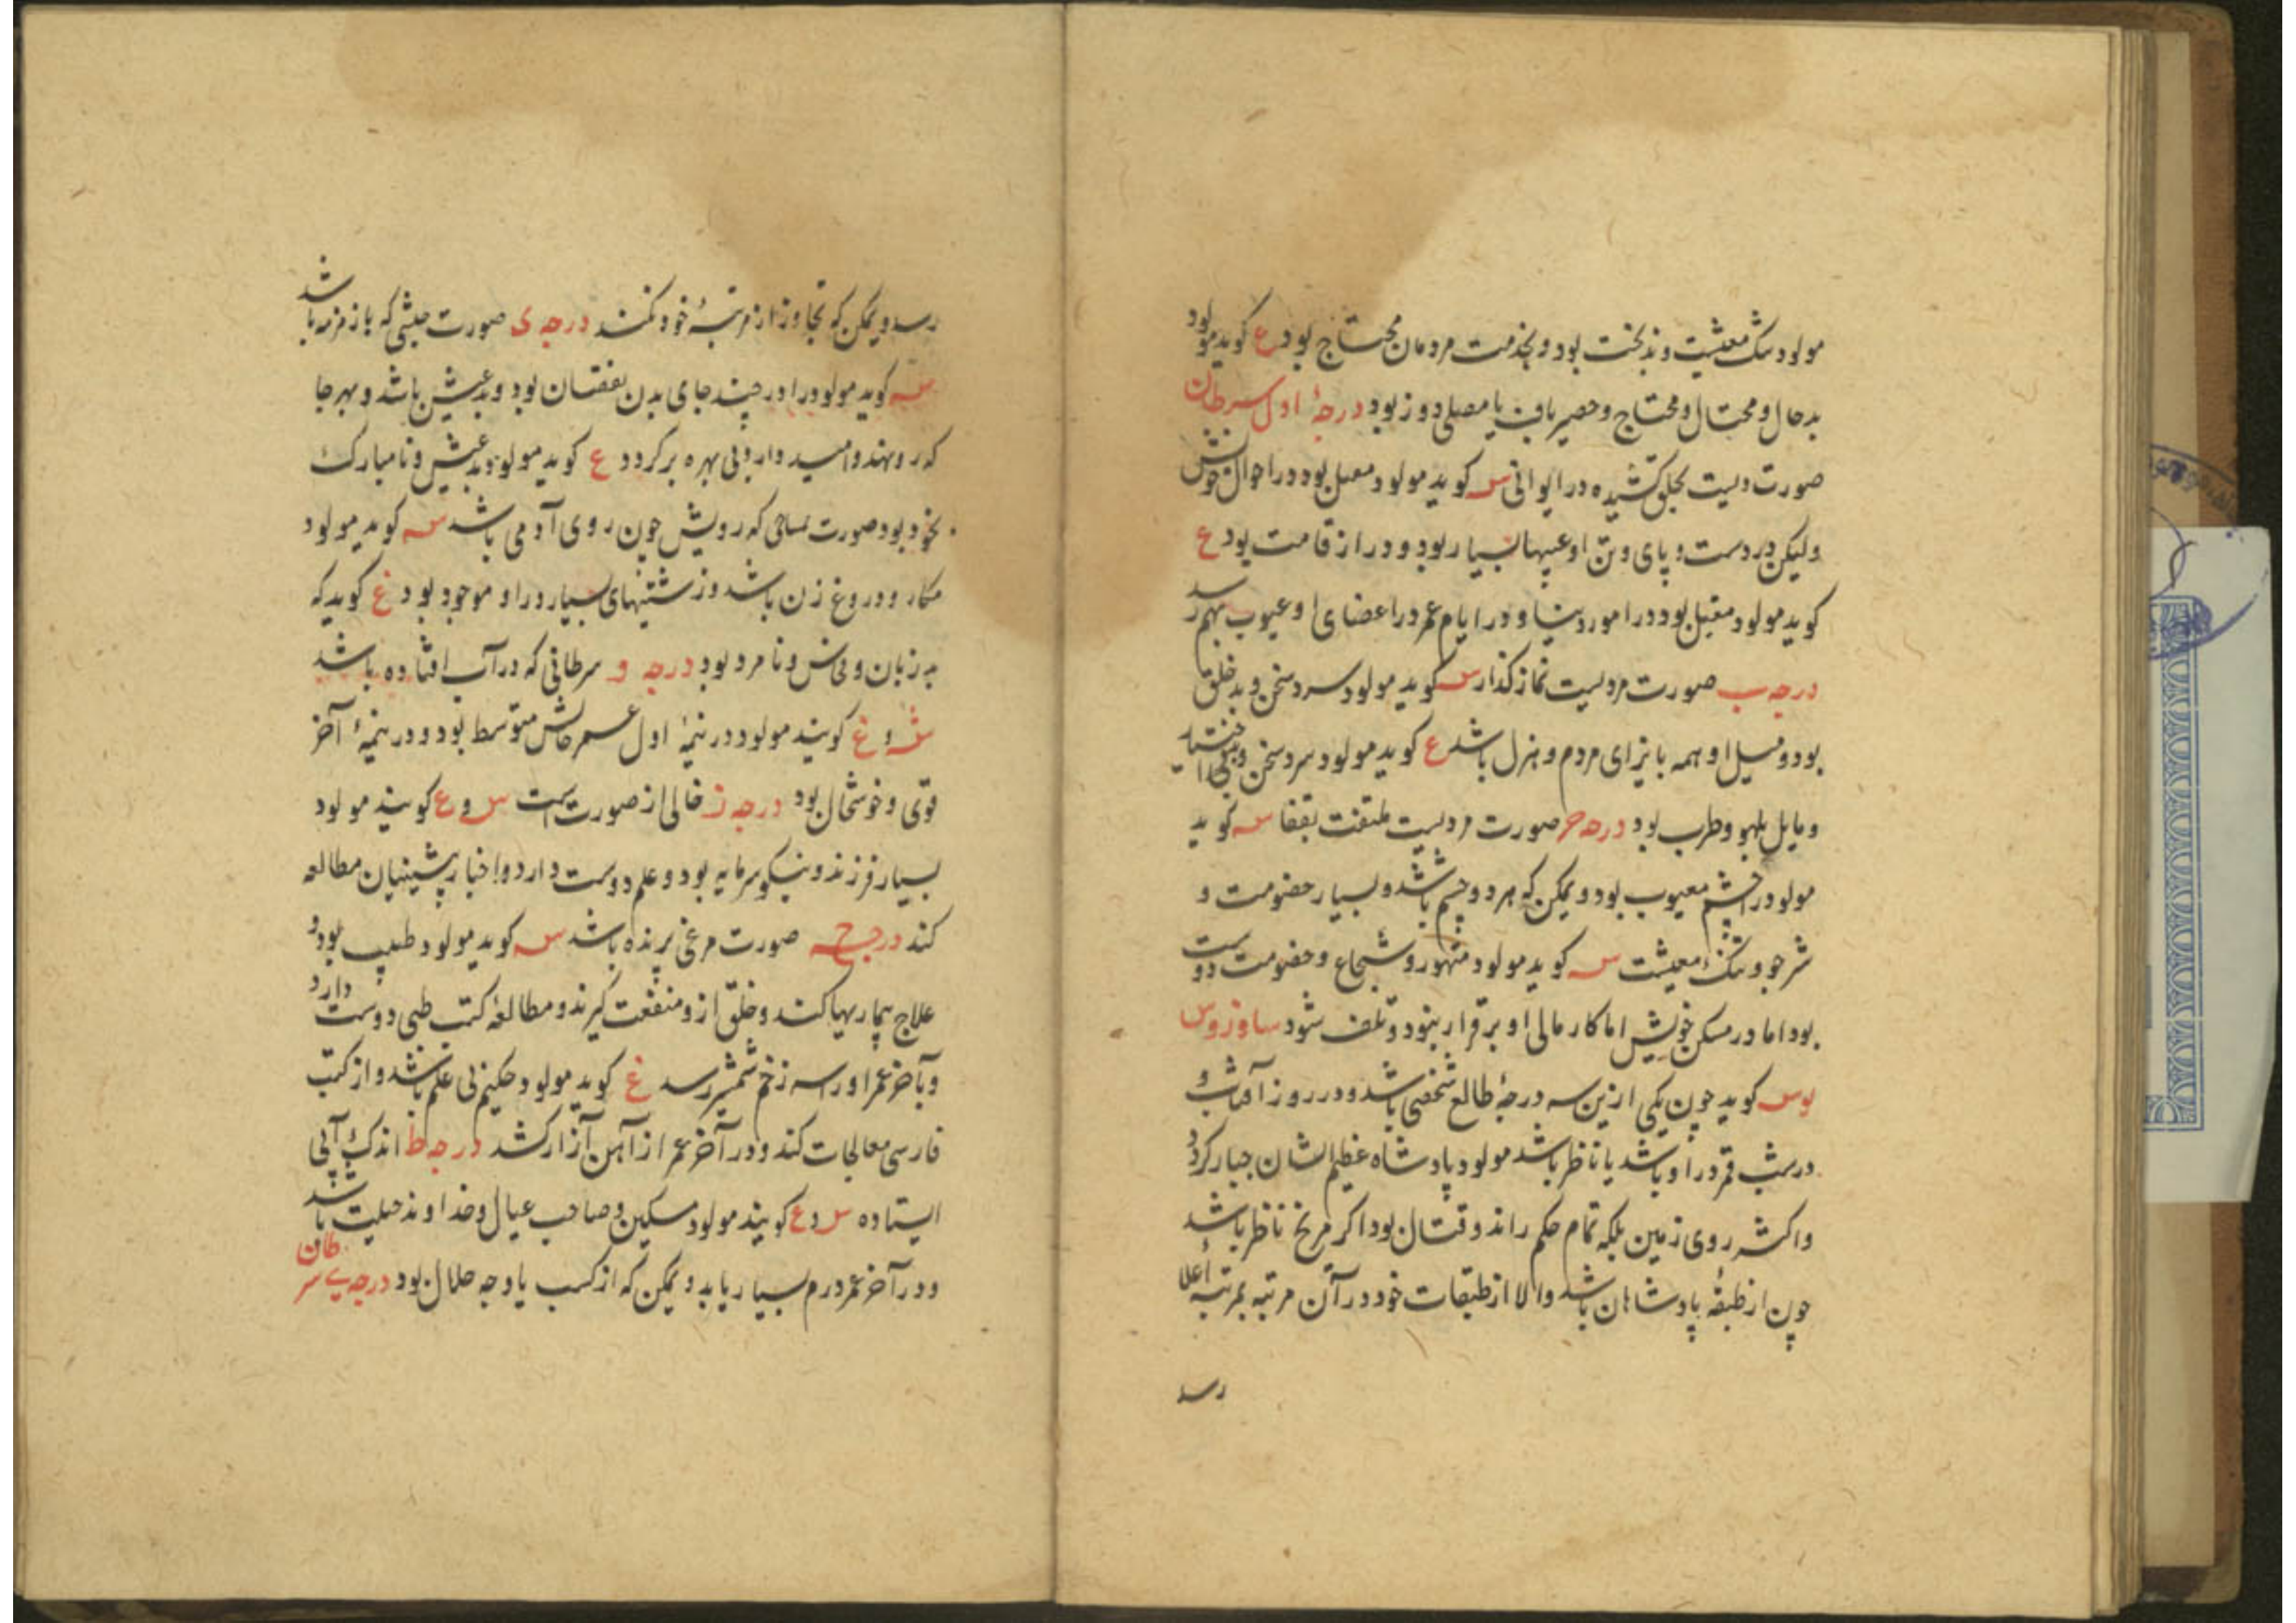 مولود تنک معیشت و بدبخت بود و بخدمت مردمان محتاج بود ع کوید مولود
بدحال و محتال و محتاج و حصیرباف یا مصلی دوز بود درجهٔ اول سرطان
صورت دستیست بحلق کشیده در ایوانی س کوید مولود مقبل بود در احوال خویش
ولیکن در دست و پای و تن او عیبها بسیار بود و دراز قامت بود ع
کوید مولود مقبل بود در امور دنیا و در ایام عمر در اعضای او عیوب بهم رسد
درجه ب صورت مردیست نماز کذار س کوید مولود سرد سخن و بد خلق
بود و میل او همه بایزای مردم و هزل باشد ع کوید مولود سرد سخن و بی اختیار
و مایل بلهو و طرب بود درجه ج صورت مردیست ملتفت بقفا س کوید
مولود را چشم معیوب بود و یمکن که هر دو چشم باشد و بسیار خصومت و
شر جو و تنک معیشت س کوید مولود متهور و شجاع و خصومت دوست
بود اما در مسکن خویش اما کار مالی او برقرار نبود و تلف شود
کوید چون یکی ازین سه درجهٔ طالع شخصی باشد و در روز آفتاب و
در شب قمر در او باشد یا ناظر باشد مولود پادشاه عظیم الشان جبار کردد
و اکثر روی زمین بلکه تمام حکم راند و قتال بود اکر مریخ ناظر باشد
چون از طبقهٔ پادشاهان باشد و الا از طبقات خود در آن مرتبه بمرتبهٔ اعلا
رسد
رسد و یمکن که تجاوز از مرتبهٔ خود نکند درجه ی صورت حبشی که با زمزمه باشد
س کوید مولود را در چند جای بدن نقصان بود و بدعیش باشد و بهر جا
که رو نهد و امید دارد بی بهره برکردد ع کوید مولود بدعیش و نامبارک
بخود بود صورت تمساحی که رویش چون روی آدمی باشد س کوید مولود
مکار و دروغ زن باشد و زشتیهای بسیار در او موجود بود غ کوید که
بد زبان و فحاش و نامرد بود درجه و سرطانی که در آب افتاده باشد
س و غ کویند مولود در نیمهٔ اول عمر حالش متوسط بود و در نیمهٔ آخر
قوی و خوشحال بود درجه ز خالی از صورت است س و ع کویند مولود
بسیار فرزند و نیکو سرمایه بود و علم دوست دارد و اخبار پیشینیان مطالعه
کند درجه ح صورت مرغی پرنده باشد س کوید مولود طبیب بود و
علاج بیماریها کند و خلق ازو منفعت کیرند و مطالعهٔ کتب طبی دوست دارد
و بآخر عمر او را سه زخم شمشیر رسد غ کوید مولود حکیم بی علم باشد و از کتب
فارسی معالجات کند و در آخر عمر از آهن آزار کشد درجه ط اندک آبی
ایستاده س و ع کویند مولود مسکین و صاحب عیال و خداوند حیلت باشد
و در آخر عمر درم بسیار یابد و یمکن که از کسب یا وجه حلال بود درجه ی سرطان